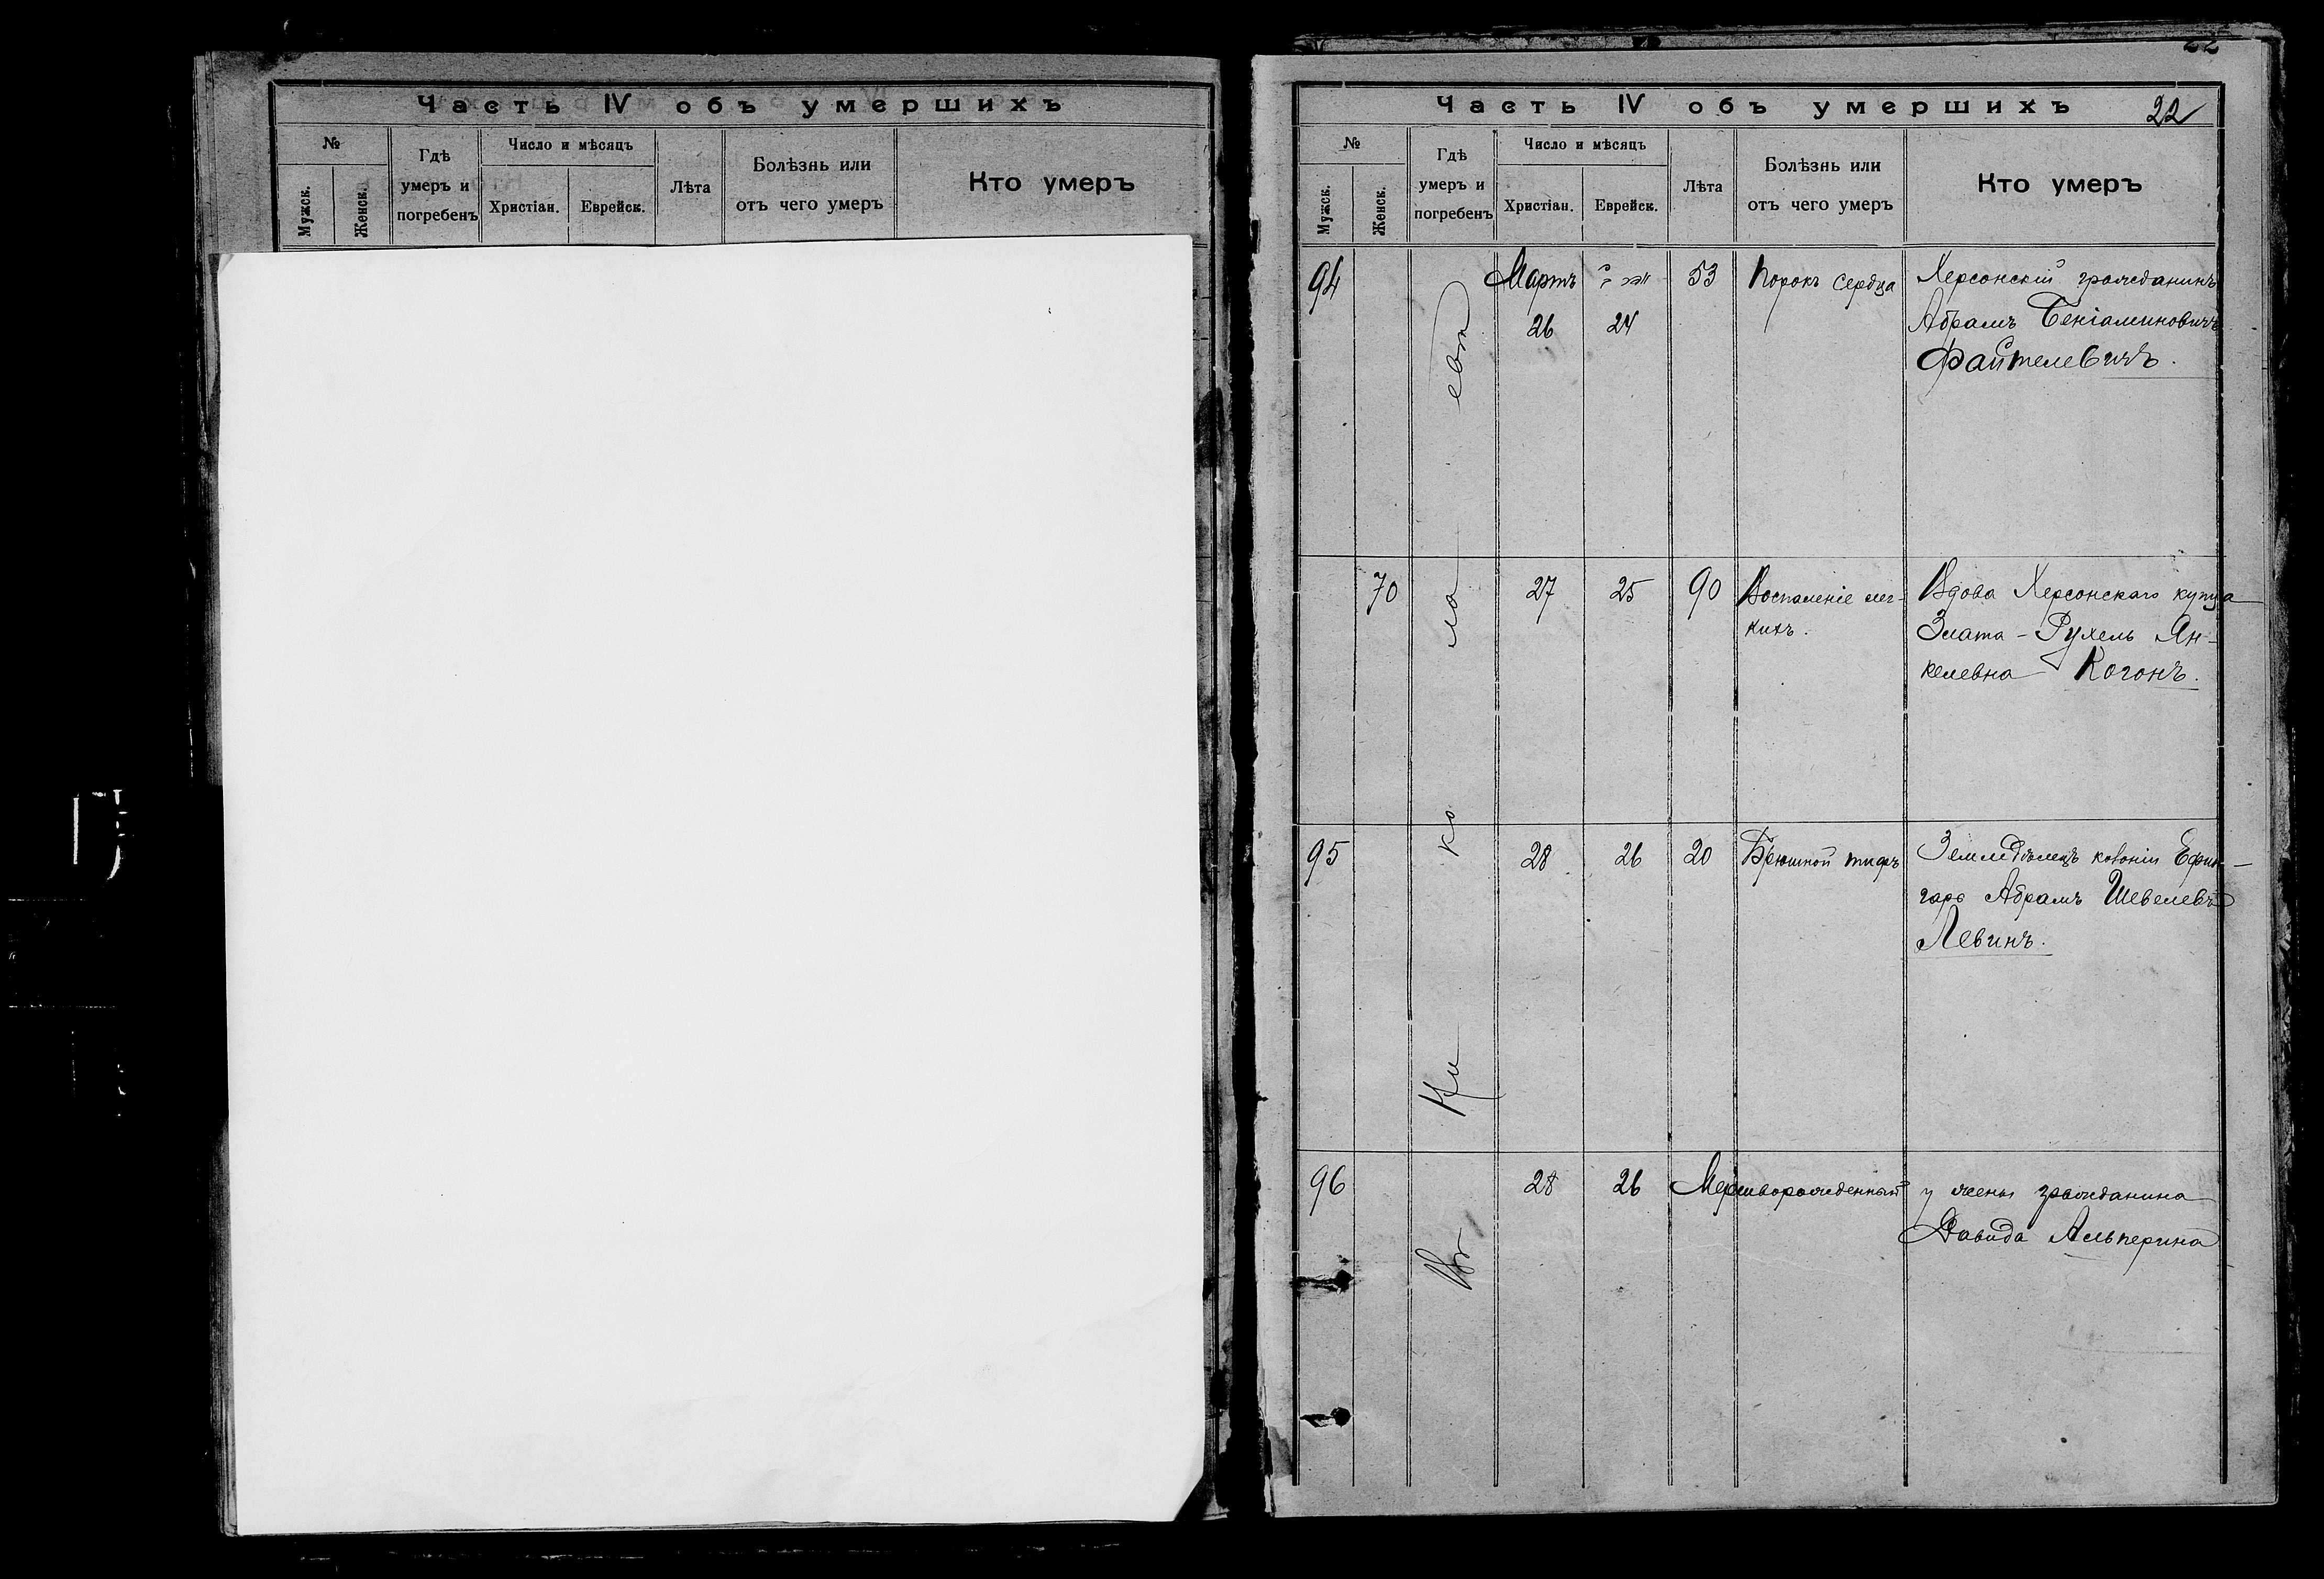 Часть IV объ умершихъ
№
Мужск.
Женск.
Гдѣ
умеръ и
погребенъ
Число и мѣсяцъ
Христіан.
Еврейск.
Лѣта
Болѣзнь или
отъ чего умеръ
Кто умеръ
22
Часть IV объ умершихъ
22
№
Мужск.
Женск.
Гдѣ
умеръ и
погребенъ
Число и мѣсяцъ
Христіан.
Еврейск.
Лѣта
Болѣзнь или
отъ чего умеръ
Кто умеръ
Въ Николаевѣ
94
Мартъ
26
24
53
Порокъ сердца
Херсонскій гражданинъ
Абрамъ Беніаминовичъ
Файтелевичъ.
70
27
25
90
Воспаленіе лег-
кихъ.
Вдова Херсонскаго купца
Злата-Рухель Ян-
келевна Когонъ.
95
28
26
20
Брюшной тифъ
Земледѣлецъ колоніи Ефин-
гарь Абрамъ Шевелевъ
Левинъ.
96
28
26
Мертворожденный
у жены гражданина
Давида Альперина